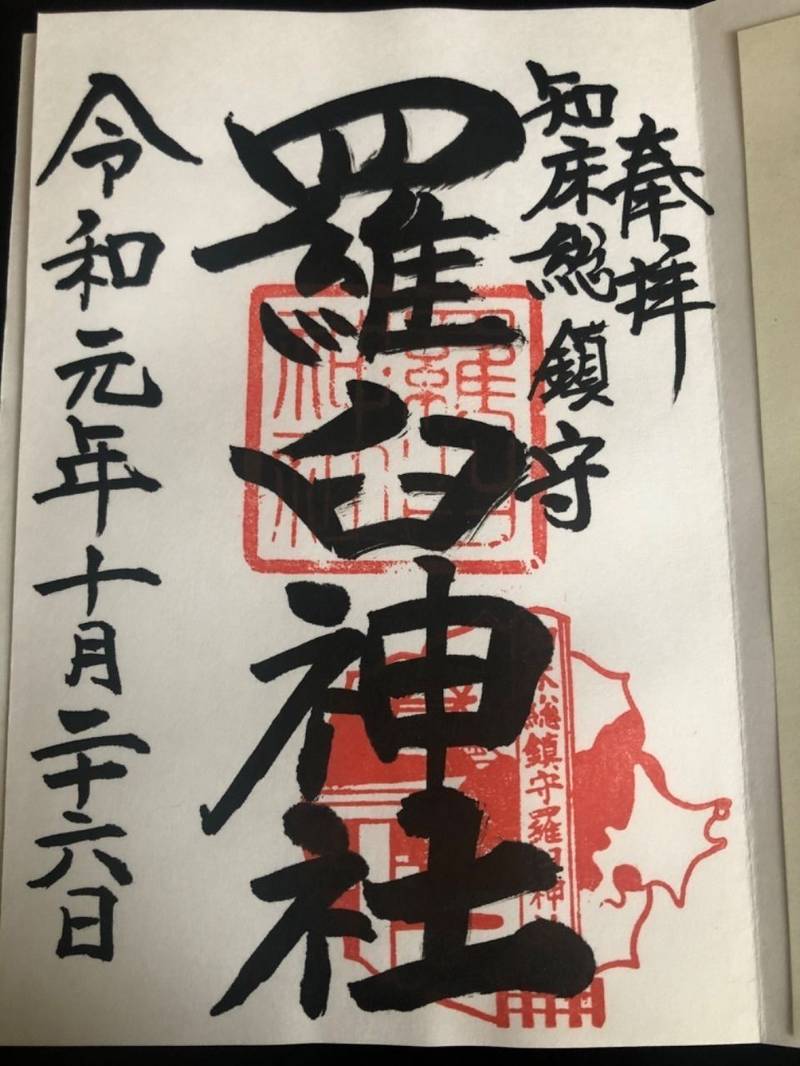 奉拝
知床総鎮守
羅臼神社
令和元年十月二十六日
羅臼神社
総鎮守羅臼神